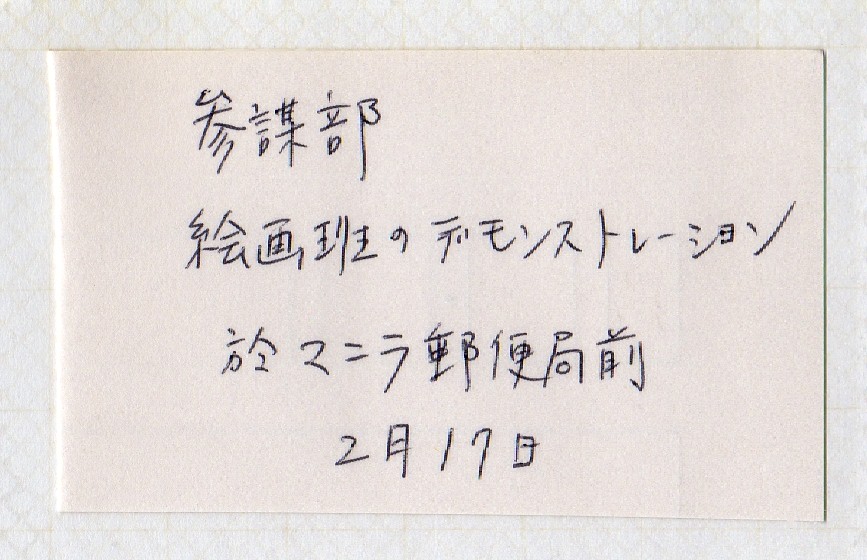 参謀部
絵画班のデモンストレーション
於マニラ郵便局前
2月17日